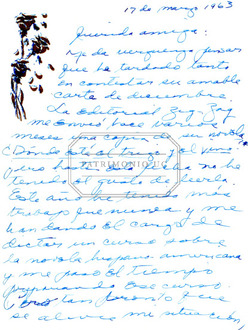 17 de marzo 1963
Querida amiga:
me da verguenza pensar
que he tardado tanto
en contestar su amable
carta de diciembre.
La Editorial Zig-Zag
me envió hace varios
meses una copia de su novela
¿Dónde está el trigo y el vino?
pero hasta ahora no he
tenido el gusto de leerla.
Este año he tenido más
trabajo que nunca y me
han dado el cargo de
dictar un curso sobre
la novela hispano americana
y me paso el tiempo
preparando ese curso.
tan pronto que
se alivie mi situación,
PATRIMONIO UC